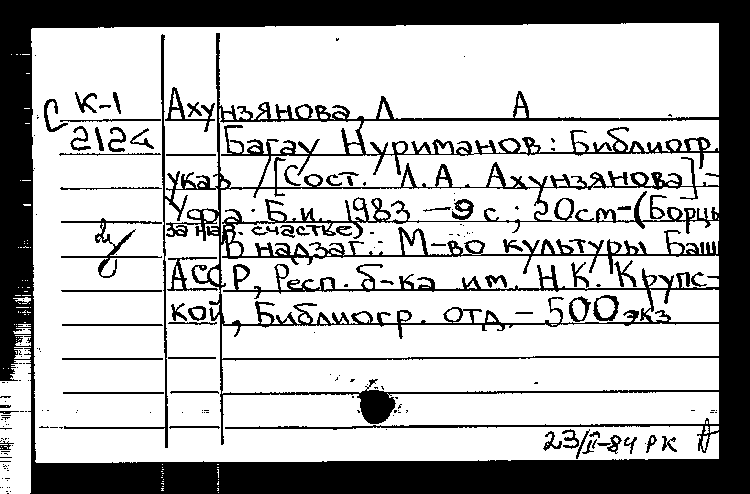 С К-1 Ахунзянова, Л А
2124 Багау Нуриманов: Библиогр.
указ. / [Сост. Л.А. Ахунзянова].-
Уфа: Б.и., 1983 - 9 с.; 20 см-(Борцы
за нар. счастье).
В надзаг.: М-во культуры Баш
АССР, Респ. б-ка им. Н.К. Крупс-
кой, Библиогр. отд. - 500 экз
23/II-84 РК